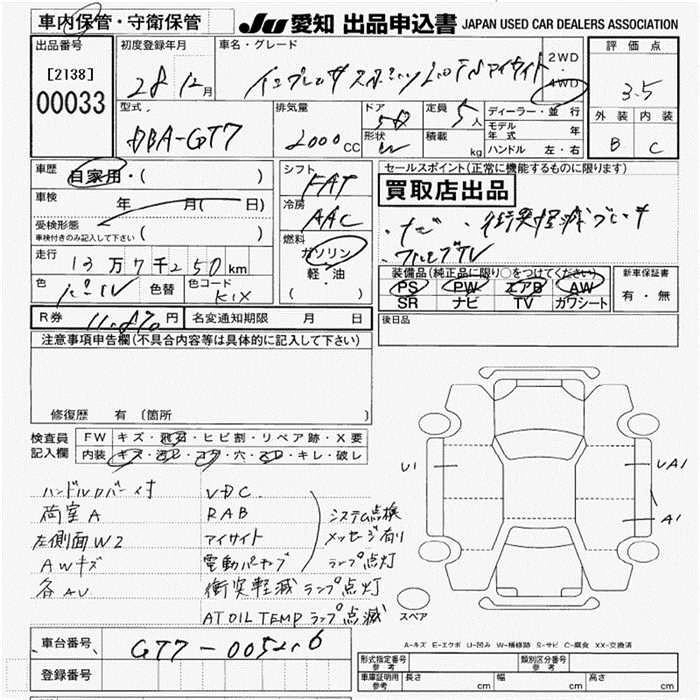 車内保管・守衛保管
JU 愛知 出品申込書 JAPAN USED CAR DEALERS ASSOCIATION
出品番号
[2138]
00033
初度登録年月
28 12月
車名・グレード
2WD
・
4WD
評価点
3.5
外装 内装
B C
型式
DBA-GT7
排気量
2000CC
ドア
5D
形状
W
定員
5人
積載
kg
ディーラー・並行
モデル年式 年
ハンドル 左・右
車歴
自家用・( )
車検 年 月( 日)
受検形態
車検付きのみ記入して下さい ( )
走行
13万7千250km
色
色替
色コード
K1X
シフト
FAT
冷房
AAC
燃料
ガソリン
・
軽・油
( )
セールスポイント(正常に機能するものに限ります)
買取店出品
・ナビ ・衝突軽減ブレーキ
・フルセグTV
装備品(純正品に限り○をつけてください)
PS PW エアB AW
SR ナビ TV カワシート
新車保証書
有・無
R券 11,870円
名変通知期限 月 日
後日品
注意事項申告欄(不具合内容等は具体的に記入して下さい)
修復歴 有 (箇所
検査員
記入欄
FW キズ・飛石・ヒビ割・リペア跡・X要
内装 キズ・ヨレ・コゲ・穴・スレ・キレ・破レ
ハンドルカバー付
荷室A
左側面W2
AWキズ
各AU
VDC
RAB
アイサイト
電動パーキング
システム点検
メッセージ有り
ランプ点灯
衝突軽減ランプ点灯
AT OIL TEMP ランプ点滅
U1
UA1
A1
スペア
A-キズ E-エクボ U-凹み W-補修跡 S-サビ C-腐食 XX-交換済
車台番号
GT7-005216
登録番号
形式指定番号
参考
類別区分番号
参考
車庫証明用
参考
長さ cm 幅 cm 高さ cm